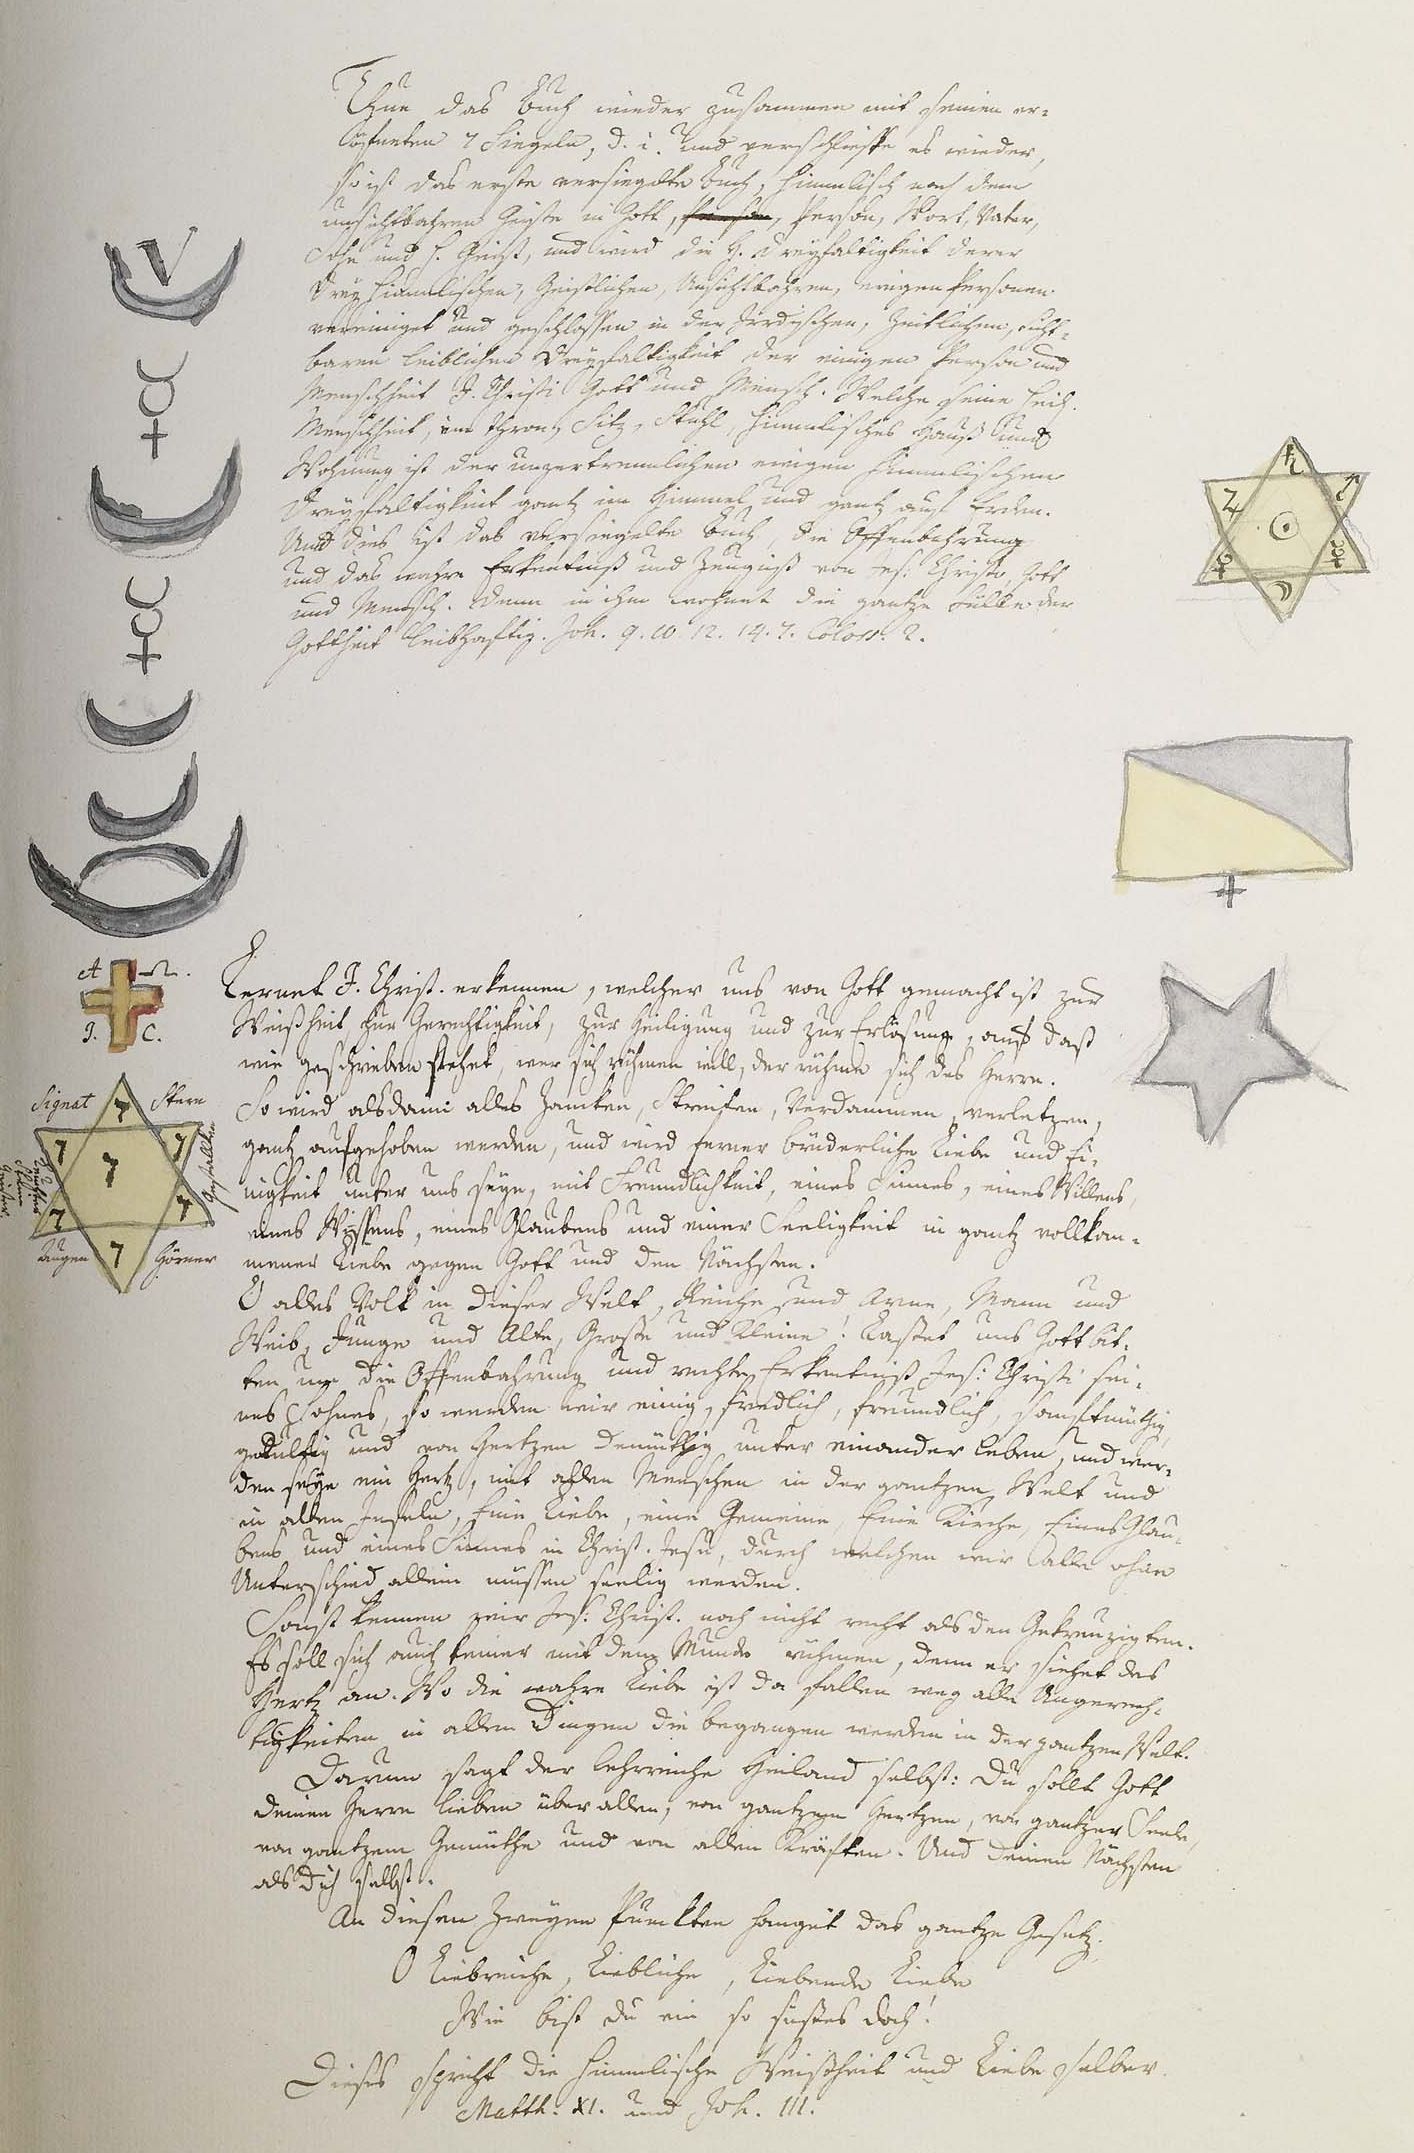 Thue das Buch wieder zusammen mit seinen er-
öfneten 7 Siegeln, d. i. und verschliesse es wieder,
so ist das erste versiegelte Buch, himmlisch nach dem
unsichtbahren Geiste in Gott, Person, Person, Wort, Vater,
Sohn und H. Geist, und wird die H. Dreyfaltigkeit derer
Drey himmlischen, Geistlichen, Unsichtbahren, ewigen Personen
vereiniget und geschlossen in der Irrdischen, Zeitlichen, sicht-
baren leiblichen Dreyfaltigkeit der einigen Person und
Menschheit J. Christi Gott und Mensch. Welche seine heil.
Menschheit, ein Thron, Sitz, Stuhl, himmlisches Hauß und
Wohnung ist der unzertrennlichen ewigen himmlischen
Dreyfaltigkeit gantz im Himmel und gantz auf Erden.
Und dies ist das versiegelte Buch, die Offenbahrung
und das wahre Erkentniß und Zeugniß von Jes: Christo, Gott
und Mensch. Denn in ihm wohnet die gantze Fülle der
Gottheit leibhafftig. Joh. 9. 10. 12. 14. 7. Coloss. 2.
V
A Ω.
J. C.
Signat Stern
7
7 7
7
7 7
7
Gestalten
Leuchter
Geister
Augen Hörner
Lernet J. Christ. erkennen, welcher uns von Gott gemacht ist zur
Weißheit zur Gerechtigkeit, zur Heiligung und zur Erlösung, auf daß
wie geschrieben stehet, wer sich rühmen will, der rühme sich des Herrn.
So wird alsdann alles Zancken, Streiten, Verdammen, verletzen,
gantz aufgehoben werden, und wird ferner brüderliche Liebe und Ei-
nigkeit unter uns seyn, mit Freundlichkeit, eines Sinnes, eines Willens,
eines Wissens, eines Glaubens und einer Seeligkeit in gantz vollkom-
mener Liebe gegen Gott und den Nächsten.
O alles Volk in dieser Welt, Reiche und Arme, Mann und
Weib, Junge und Alte, Große und Kleine! Lasset uns Gott bit-
ten um die Offenbahrung und rechte Erkentniß Jes: Christi sei-
nes Sohnes, so werden wir einig, friedlich, freundlich, sanftmüthig,
gedultig und von Hertzen demüthig unter einander leben, und wer-
den seyn ein Hertz, mit allen Menschen in der gantzen Welt und
in allen Inseln, Eine Liebe, eine Gemeine, Eine Kirche, Eines Glau-
bens und eines Sinnes in Christ. Jesu, durch welchen wir alle ohne
Unterschied allein müssen seelig werden.
Sonst kennen wir Jes: Christ. noch nicht recht als den Gekreuzigten.
Es soll sich auch keiner mit dem Munde rühmen, denn er siehet das
Hertz an. Wo die wahre Liebe ist da fallen weg alle Ungerech-
tigkeiten in allen Dingen die begangen werden in der gantzen Welt.
Darum sagt der lehrreiche Heiland selbst: Du sollt Gott
deinen Herrn lieben über alles, von gantzem Hertzen, von gantzer Seele,
von gantzem Gemüthe und von allen Kräften. Und deinen Nächsten
als dich selbst.
An diesen zweyen Punckten hanget das gantze Gesetz.
O Liebreiche, Liebliche, Liebende Liebe
Wie bist du ein so süßes Joch!
Dieses spricht die himmlische Weißheit und Liebe selber.
Matth. XI. und Joh. III.